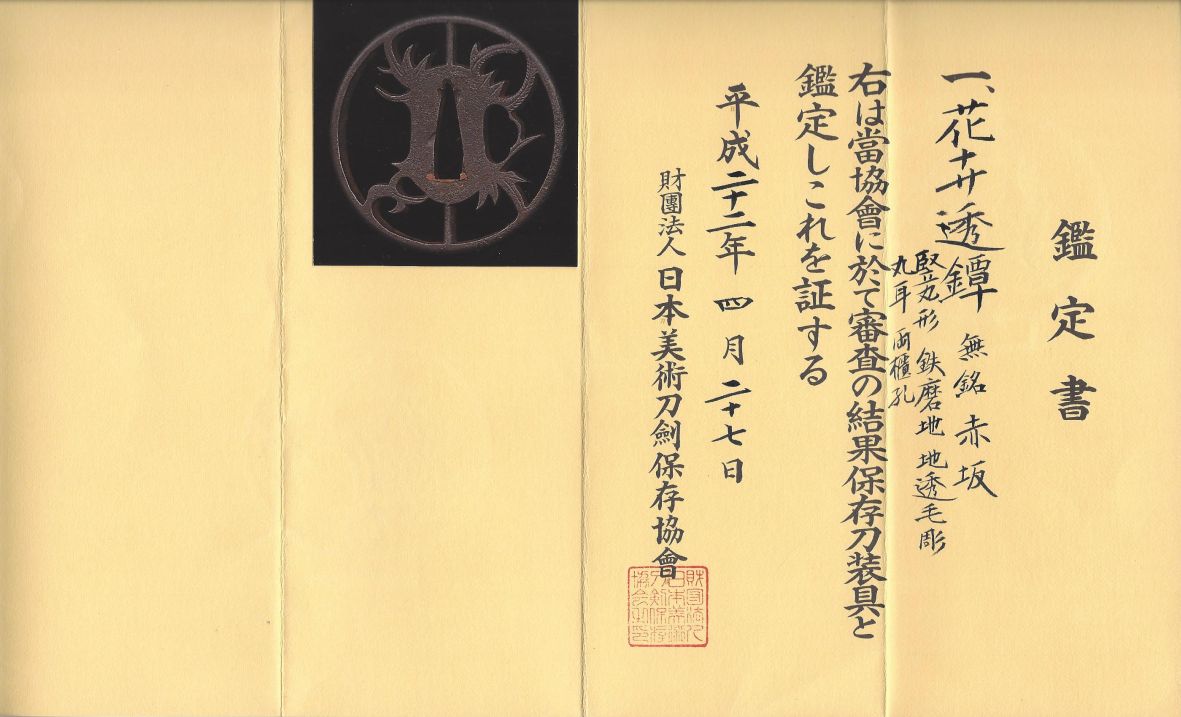 鑑定書
一、花卉透鐔 無銘 赤坂
竪丸形 鉄磨地 地透毛彫
丸耳 両櫃孔
右は當協會に於て審査の結果保存刀装具と
鑑定しこれを証する
平成二十二年 四月 二十七日
財團法人 日本美術刀劍保存協會
財団法人
日本美術
刀剣保存
協会之印